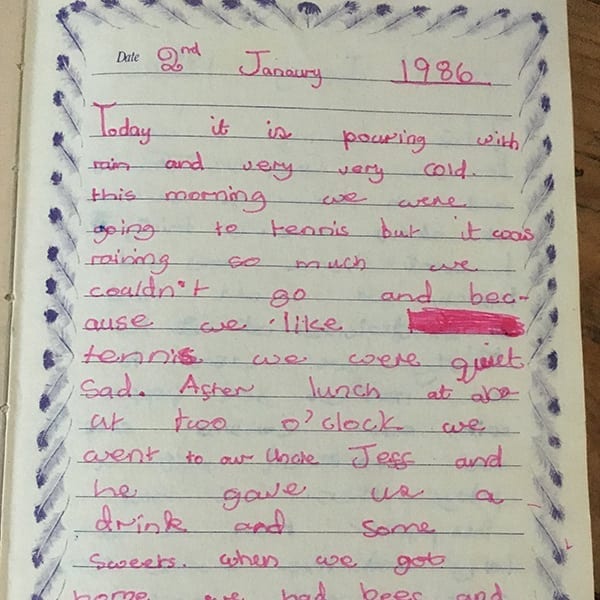 Date 2nd Janaury 1986
Today it is pouring with
rain and very very cold.
this morning we were
going to tennis but it was
raining so much we
couldn't go and bec-
ause we like
tennis we were quiet
sad. After lunch at abo
at two o'clock we
went to our Uncle Jeff and
he gave us a
drink and some
sweets. when we got
home we had beef and